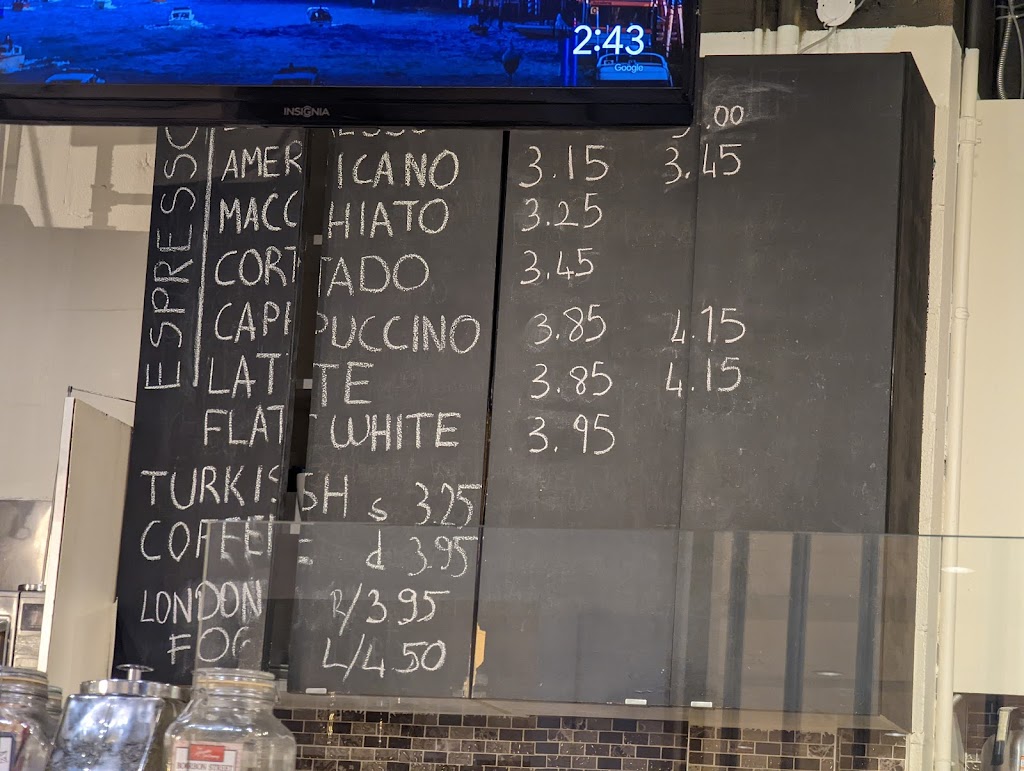 2:43
Google
INSIGNIA
ESPRESSO
.00
AMERICANO 3.15 3.45
MACCHIATO 3.25
CORTADO 3.45
CAPPUCCINO 3.85 4.15
LATTE 3.85 4.15
FLAT WHITE 3.95
TURKISH s 3.25
COFFEE d 3.95
LONDON R/3.95
FOG L/4.50